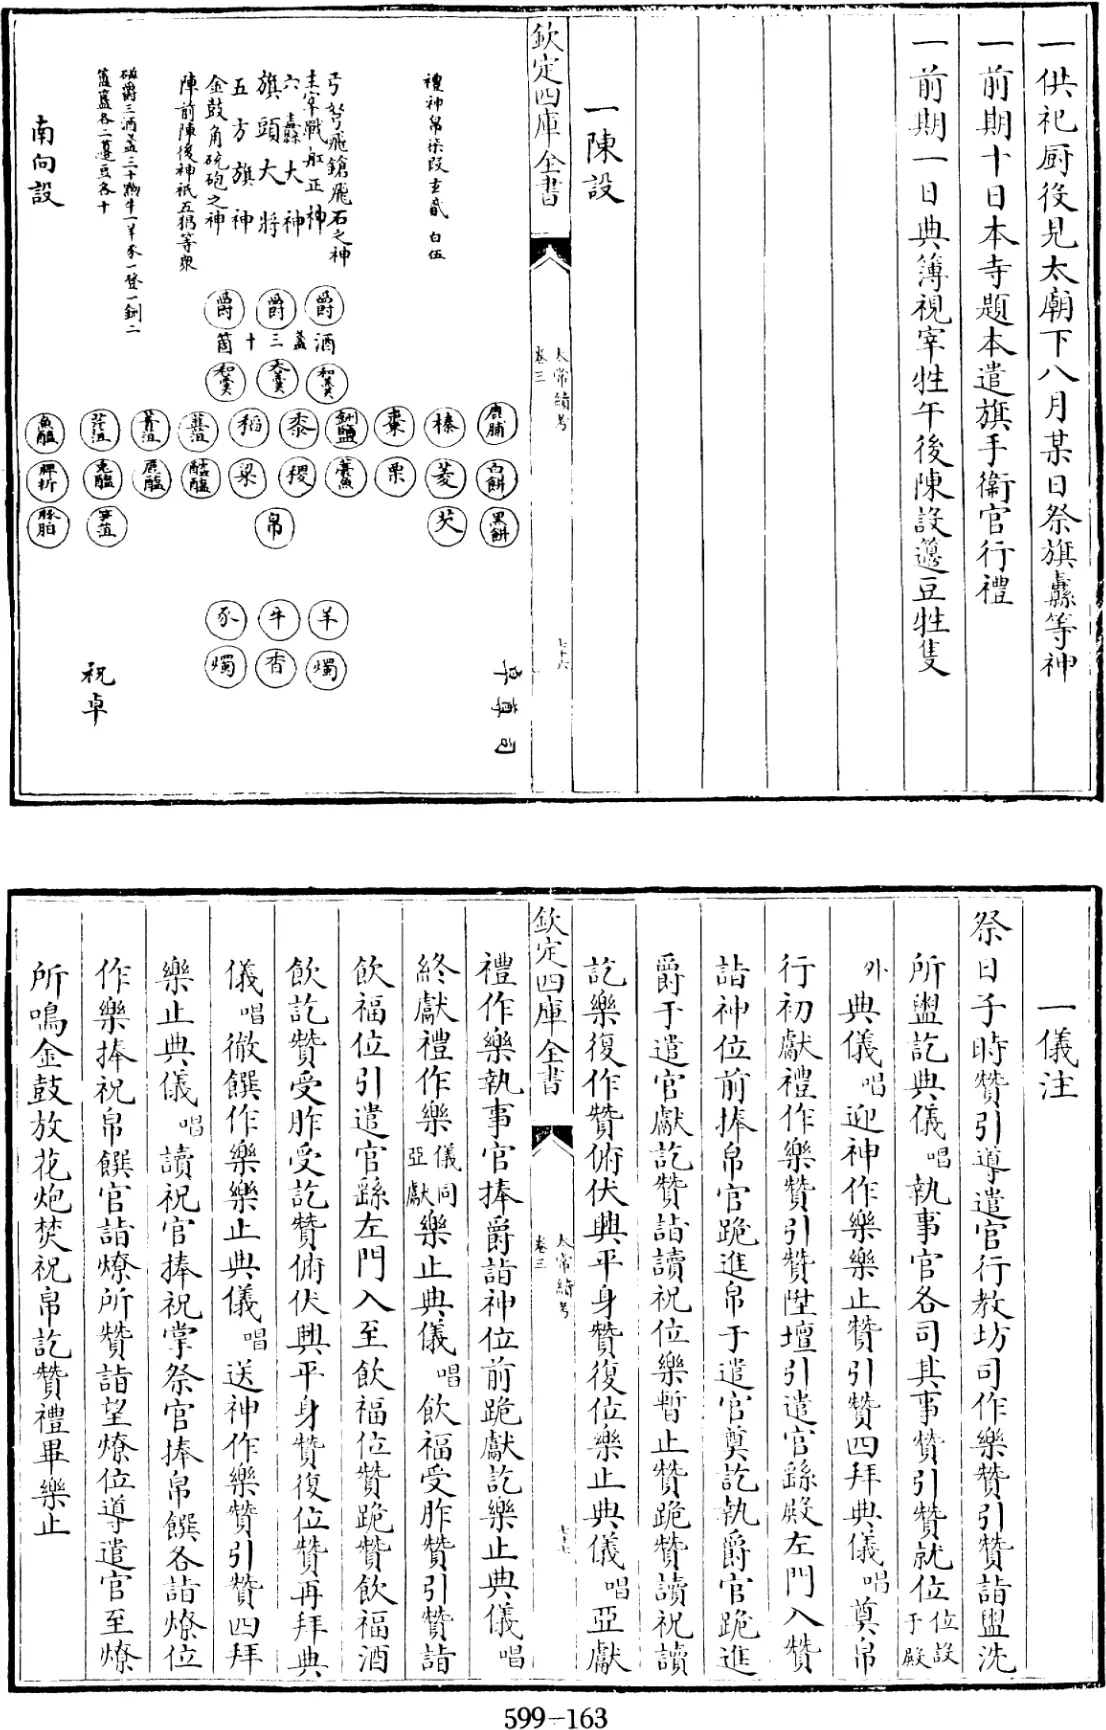 一供祀厨後見太廟下八月某日祭旗纛等神
一前期十日本寺題本遣旗手衛官行禮
一前期一日典簿視宰牲午後陳設籩豆牲隻
一陳設
欽定四庫全書
太常續考
卷三
七十六
禮神帛柒段玄貳 白伍
弓弩飛鎗飛石之神
主宰戰船正神
六纛大神
旗頭大將
五方旗神
金鼓角銃砲之神
陣前陣後神祇五猖等衆
磁爵三酒盞三十犢牛一羊豕一登一鉶二
簠簋各二籩豆各十
南向設
爵 爵 爵
酒盞三十箇
和羹 太羹 和羹
鹿脯 榛 棗 鉶鹽 黍 稻 韭菹 菁菹 芹菹 魚醢
白餅 菱 栗 藁魚 稷 粱 醓醢 鹿醢 兔醢 脾析
黑餅 芡 帛 筍菹 豚胉
羊 牛 豕
燭 香 燭
祝卓
一儀注
祭日子時贊引導遣官行教坊司作樂贊引贊詣盥洗
所盥訖典儀唱執事官各司其事贊引贊就位位設于殿
外典儀唱迎神作樂樂止贊引贊四拜典儀唱奠帛
行初獻禮作樂贊引贊陞壇引遣官繇殿左門入贊
詣神位前捧帛官跪進帛于遣官奠訖執爵官跪進
爵于遣官獻訖贊詣讀祝位樂暫止贊跪贊讀祝讀
訖樂復作贊俯伏興平身贊復位樂止典儀唱亞獻
欽定四庫全書
太常續考
卷三
七十七
禮作樂執事官捧爵詣神位前跪獻訖樂止典儀唱
終獻禮作樂儀同亞獻樂止典儀唱飲福受胙贊引贊詣
飲福位引遣官繇左門入至飲福位贊跪贊飲福酒
飲訖贊受胙受訖贊俯伏興平身贊復位贊再拜典
儀唱徹饌作樂樂止典儀唱送神作樂贊引贊四拜
樂止典儀唱讀祝官捧祝掌祭官捧帛饌各詣燎位
作樂捧祝帛饌官詣燎所贊詣望燎位導遣官至燎
所鳴金鼓放花炮焚祝帛訖贊禮畢樂止
599-163